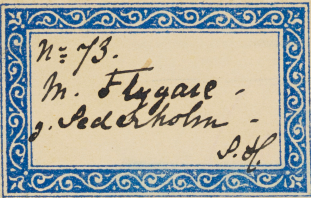 No 73.
M. Flygare -
g. Sederholm -
S. H.